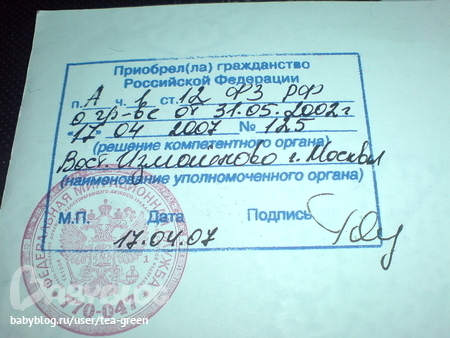 Приобрел(ла) гражданство
Российской Федерации
п. А ч. 1 ст. 12 ФЗ РФ
о гр-ве от 31.05.2002г
"17" 04 2007 № 125
(решение компетентного органа)
Вост. Измайлово г. Москвы
(наименование уполномоченного органа)
М.П. Дата Подпись
17.04.07
ФЕДЕРАЛЬНАЯ МИГРАЦИОННАЯ СЛУЖБА
770-047
babyblog.ru/user/tea-green